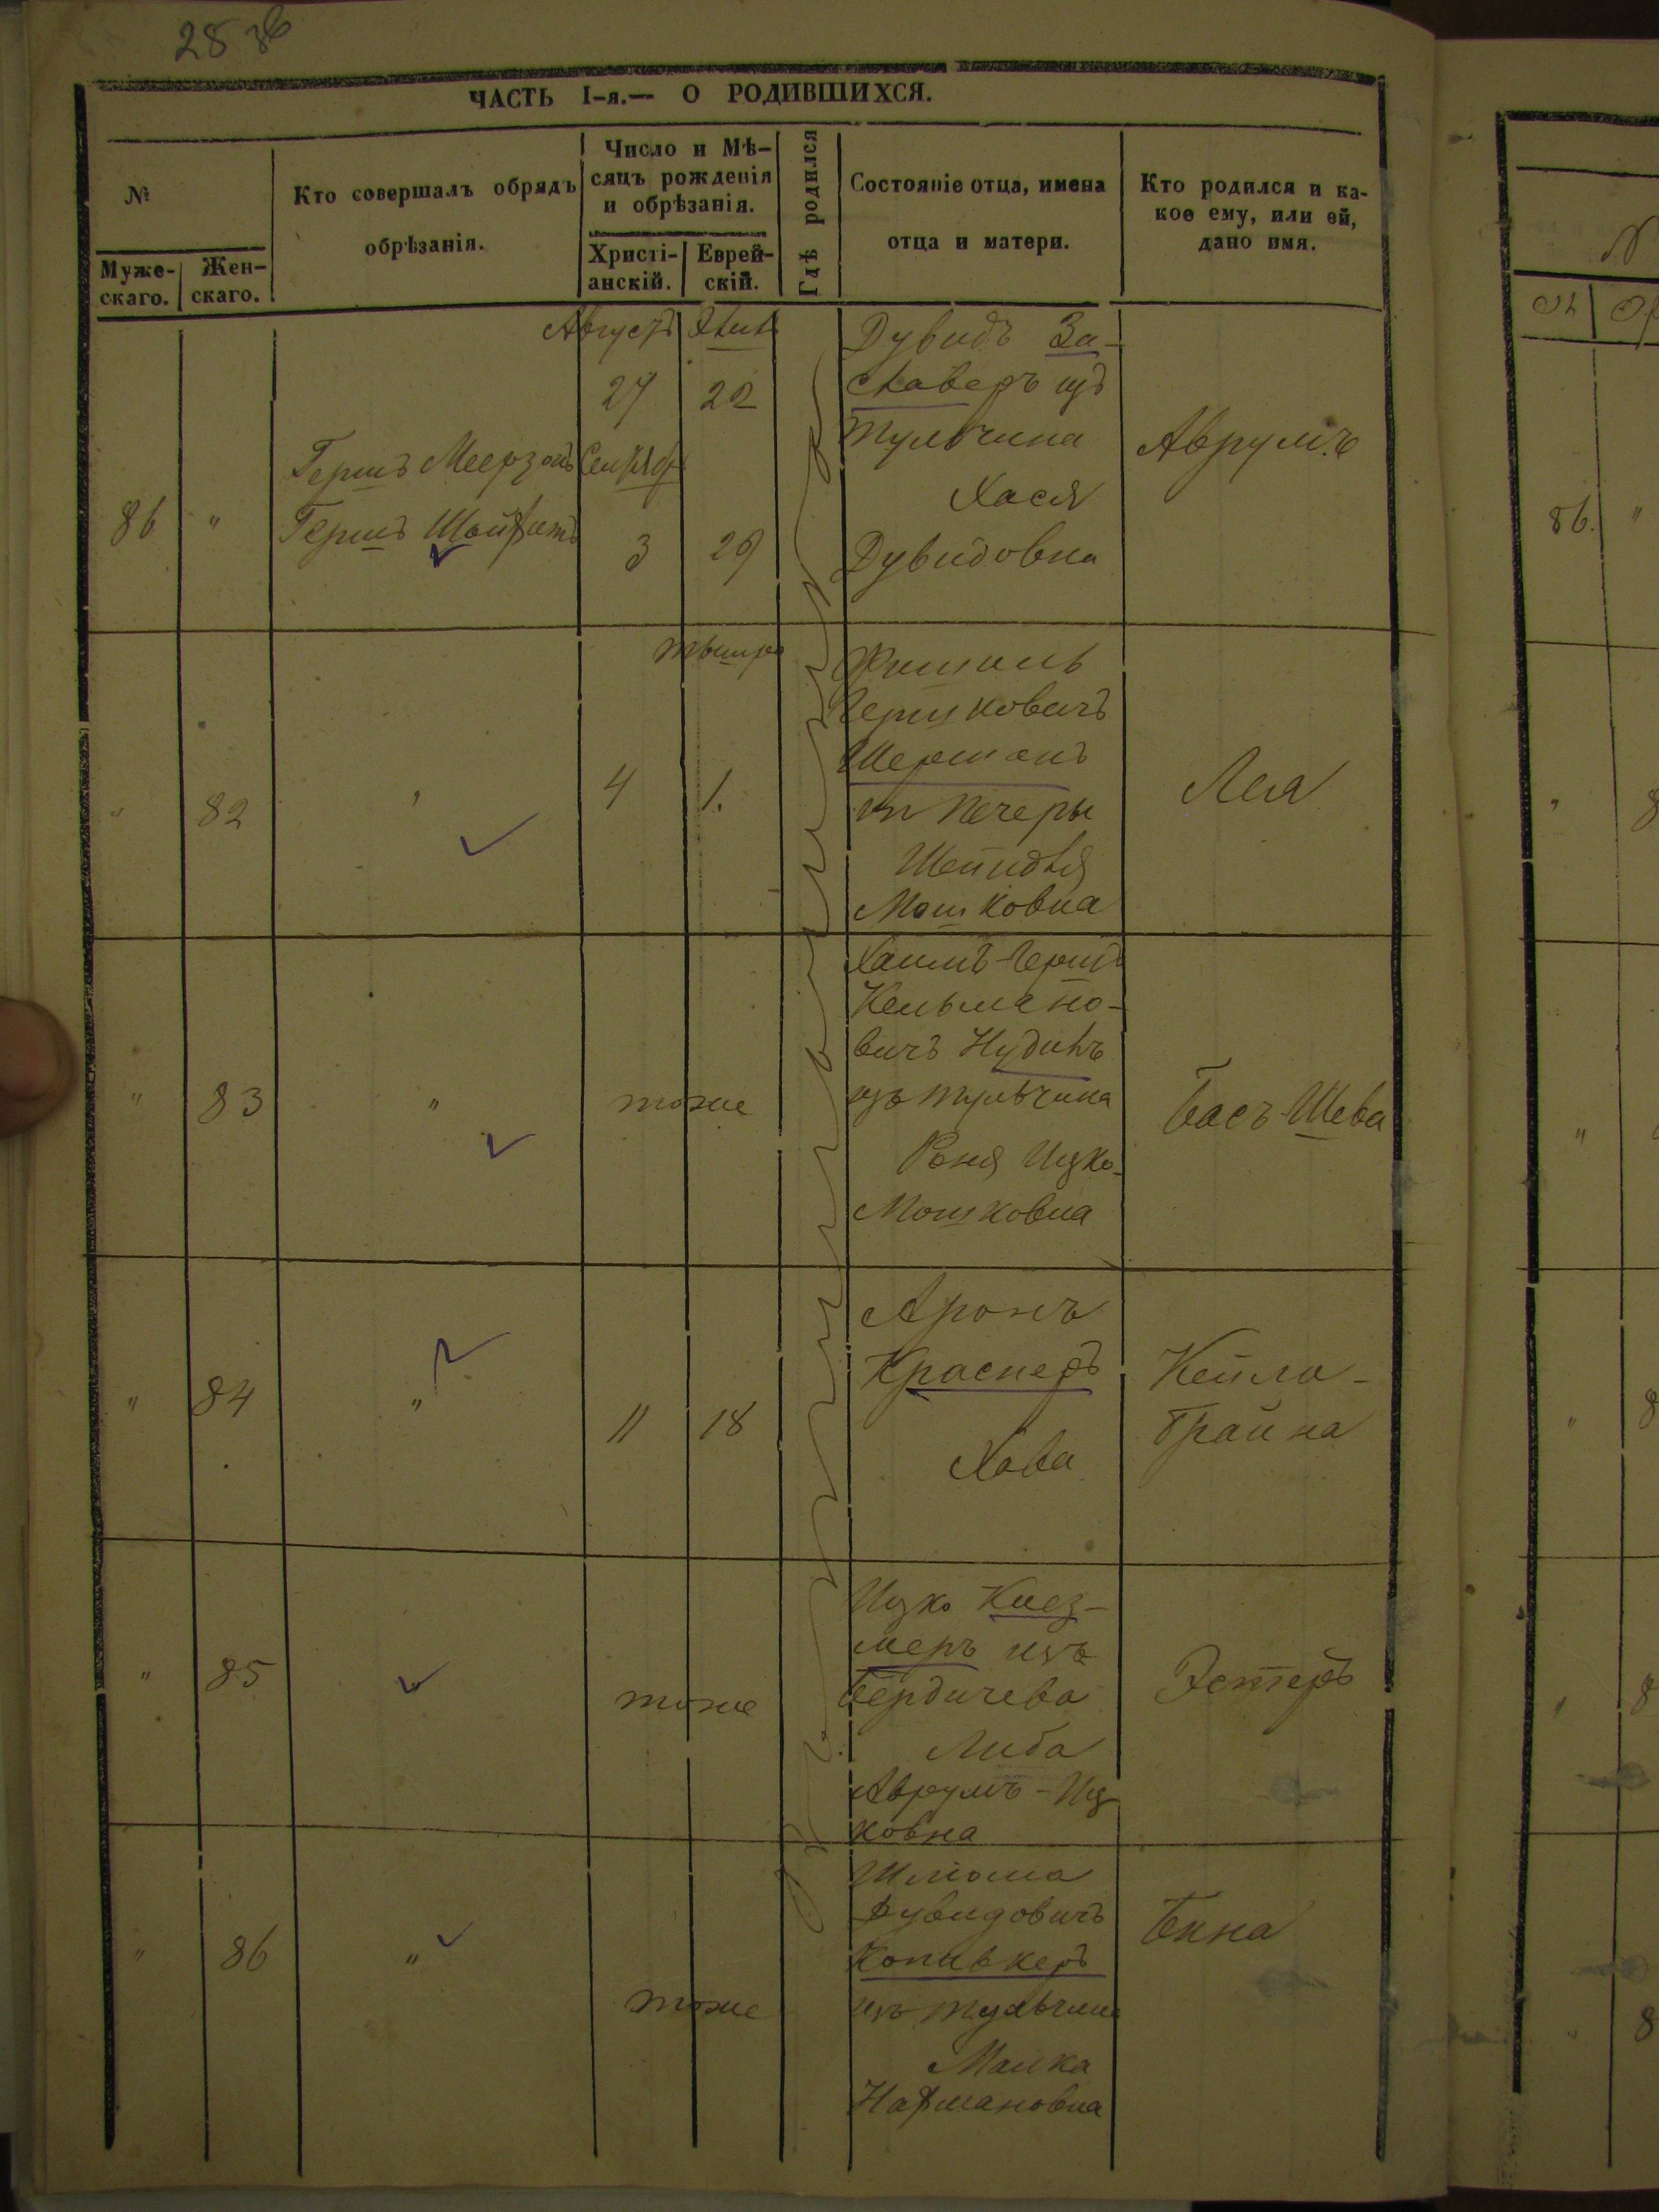 28 36
ЧАСТЬ I-я.— О РОДИВШИХСЯ.
№
Муже-
скаго.
Жен-
скаго.
Кто совершалъ обрядъ
обрѣзанія.
Число и Мѣ-
сяцъ рожденія
и обрѣзанія.
Христі-
анскій.
Еврей-
скій.
Гдѣ родился
Состояніе отца, имена
отца и матери.
Кто родился и ка-
кое ему, или ей,
дано имя.
86 "
Гершъ Меерзонъ
Гершъ
Августъ
27 22
3 29
Дувидъ За-
славеръ изъ
Тульчина
Хася
Дувидовна
Аврумъ
" 82
4 1.
Фишель
Гершковичъ
Шерманъ
Печеры
Шейндля
Мошковна
Лея
" 83 "
тоже
Хаимъ-Гершъ
Кельмано-
вичъ Нудинъ
изъ Тульчина
Роня Ицко-
Мошковна
Басъ-Шева
" 84 "
11 18
Аронъ
Краснеръ
Хова
Кейла-
Брайна
" 85
тоже
Ицко Клез-
меръ изъ
Бердичева
Либа
Аврумъ-Иц
ковна
Эстеръ
" 86 "
тоже
Шлиома
Дувидовичъ
Копивкеръ
изъ Тульчина
Малка
Нафмановна
Бина
86. "